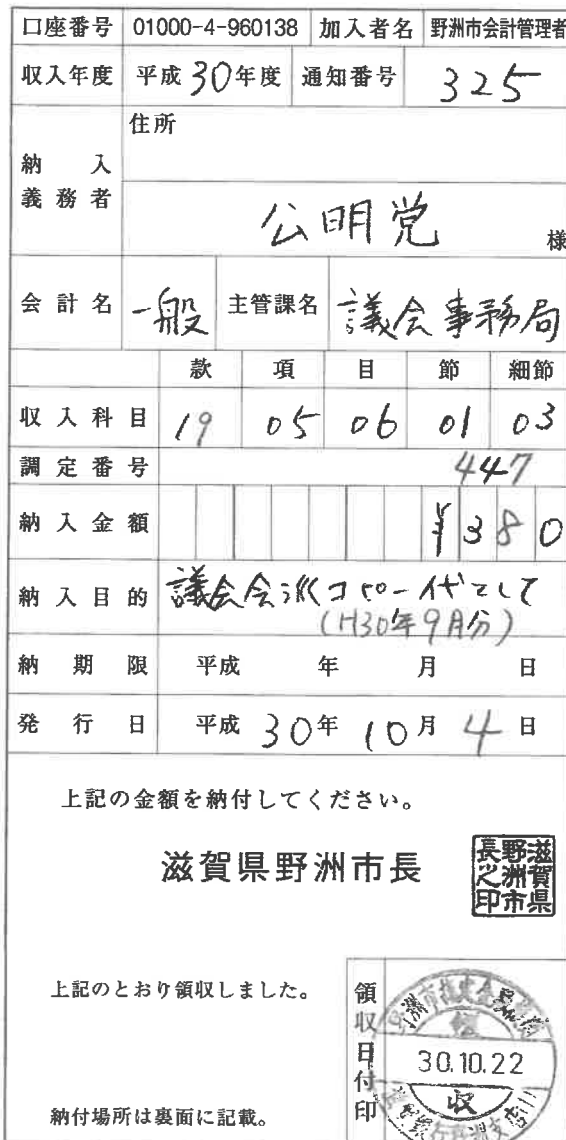 口座番号 01000-4-960138 加入者名 野洲市会計管理者
収入年度 平成30年度 通知番号 325
住所
納入義務者
公明党 様
会計名 一般 主管課名 議会事務局
款 項 目 節 細節
収入科目 19 05 06 01 03
調定番号 447
納入金額 ¥380
納入目的 議会会派コピー代として
(H30年9月分)
納期限 平成 年 月 日
発行日 平成30年10月4日
上記の金額を納付してください。
滋賀県野洲市長
滋賀県野洲市長之印
上記のとおり領収しました。
領収日付印
30.10.22
収
納付場所は裏面に記載。